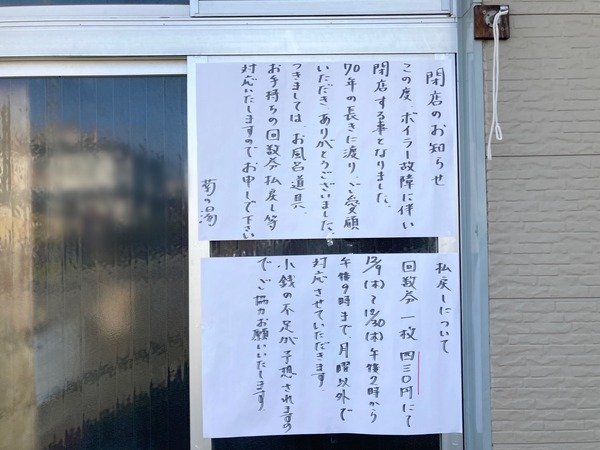 閉店のお知らせ
この度、ボイラー故障に伴い
閉店する事となりました。
70年の長きに渡り、ご愛顧
いただきありがとうございました。
つきましては、お風呂道具、
お手持ちの回数券払戻し等
対応いたしますのでお申し下さい
菊の湯
払戻しについて
回数券一枚四三〇円にて
12/9(木)〜12/30(木)午後2時から
午後9時まで、月曜以外で
対応させていただきます
小銭の不足が予想されますの
でご協力お願いいたします